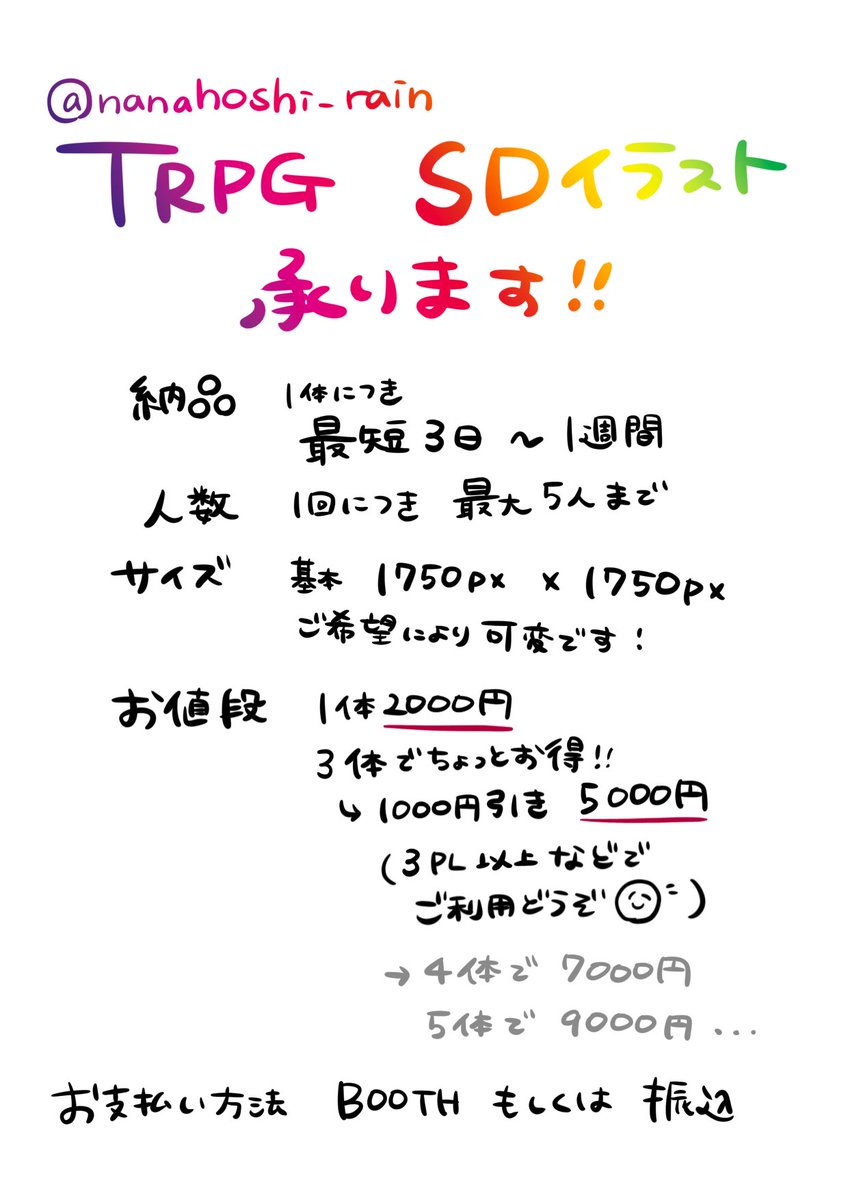 @nanahoshi_rain
TRPG SDイラスト
承ります!!
納品 1体につき
最短3日 ～ 1週間
人数 1回につき 最大5人まで
サイズ 基本 1750px x 1750px
ご希望により可変です!
お値段 1体2000円
3体でちょっとお得!!
↳ 1000円引き 5000円
(3PL以上などで
ご利用どうぞ)
→ 4体で 7000円
5体で 9000円...
お支払い方法 BOOTH もしくは 振込